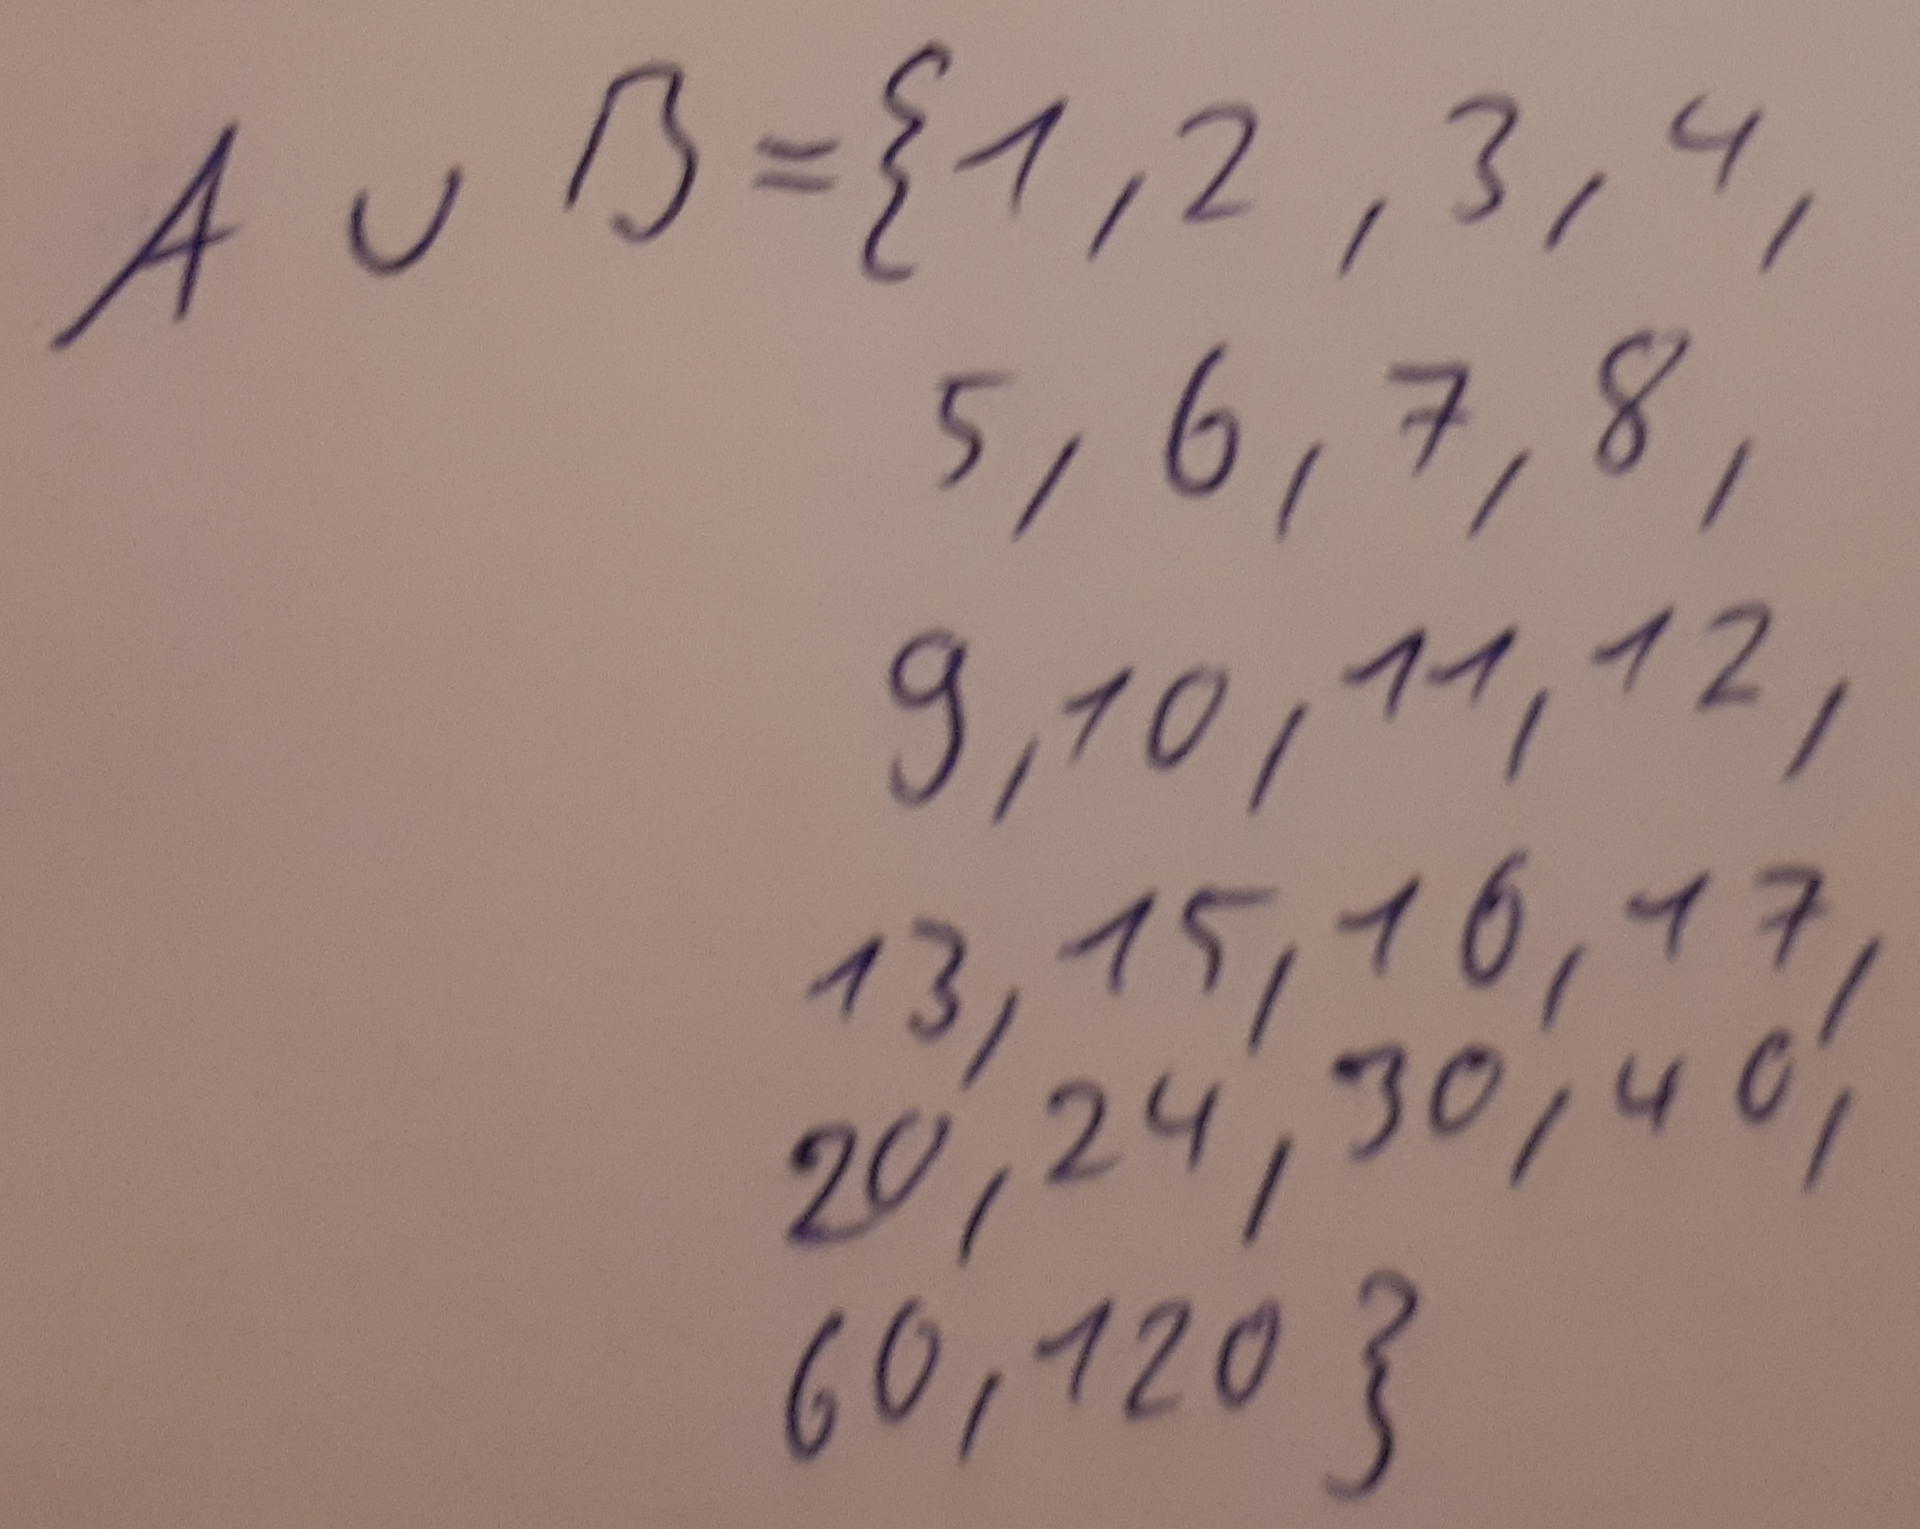 A ∪ B = {1, 2, 3, 4,
5, 6, 7, 8,
9, 10, 11, 12,
13, 15, 16, 17,
20, 24, 30, 40,
60, 120}